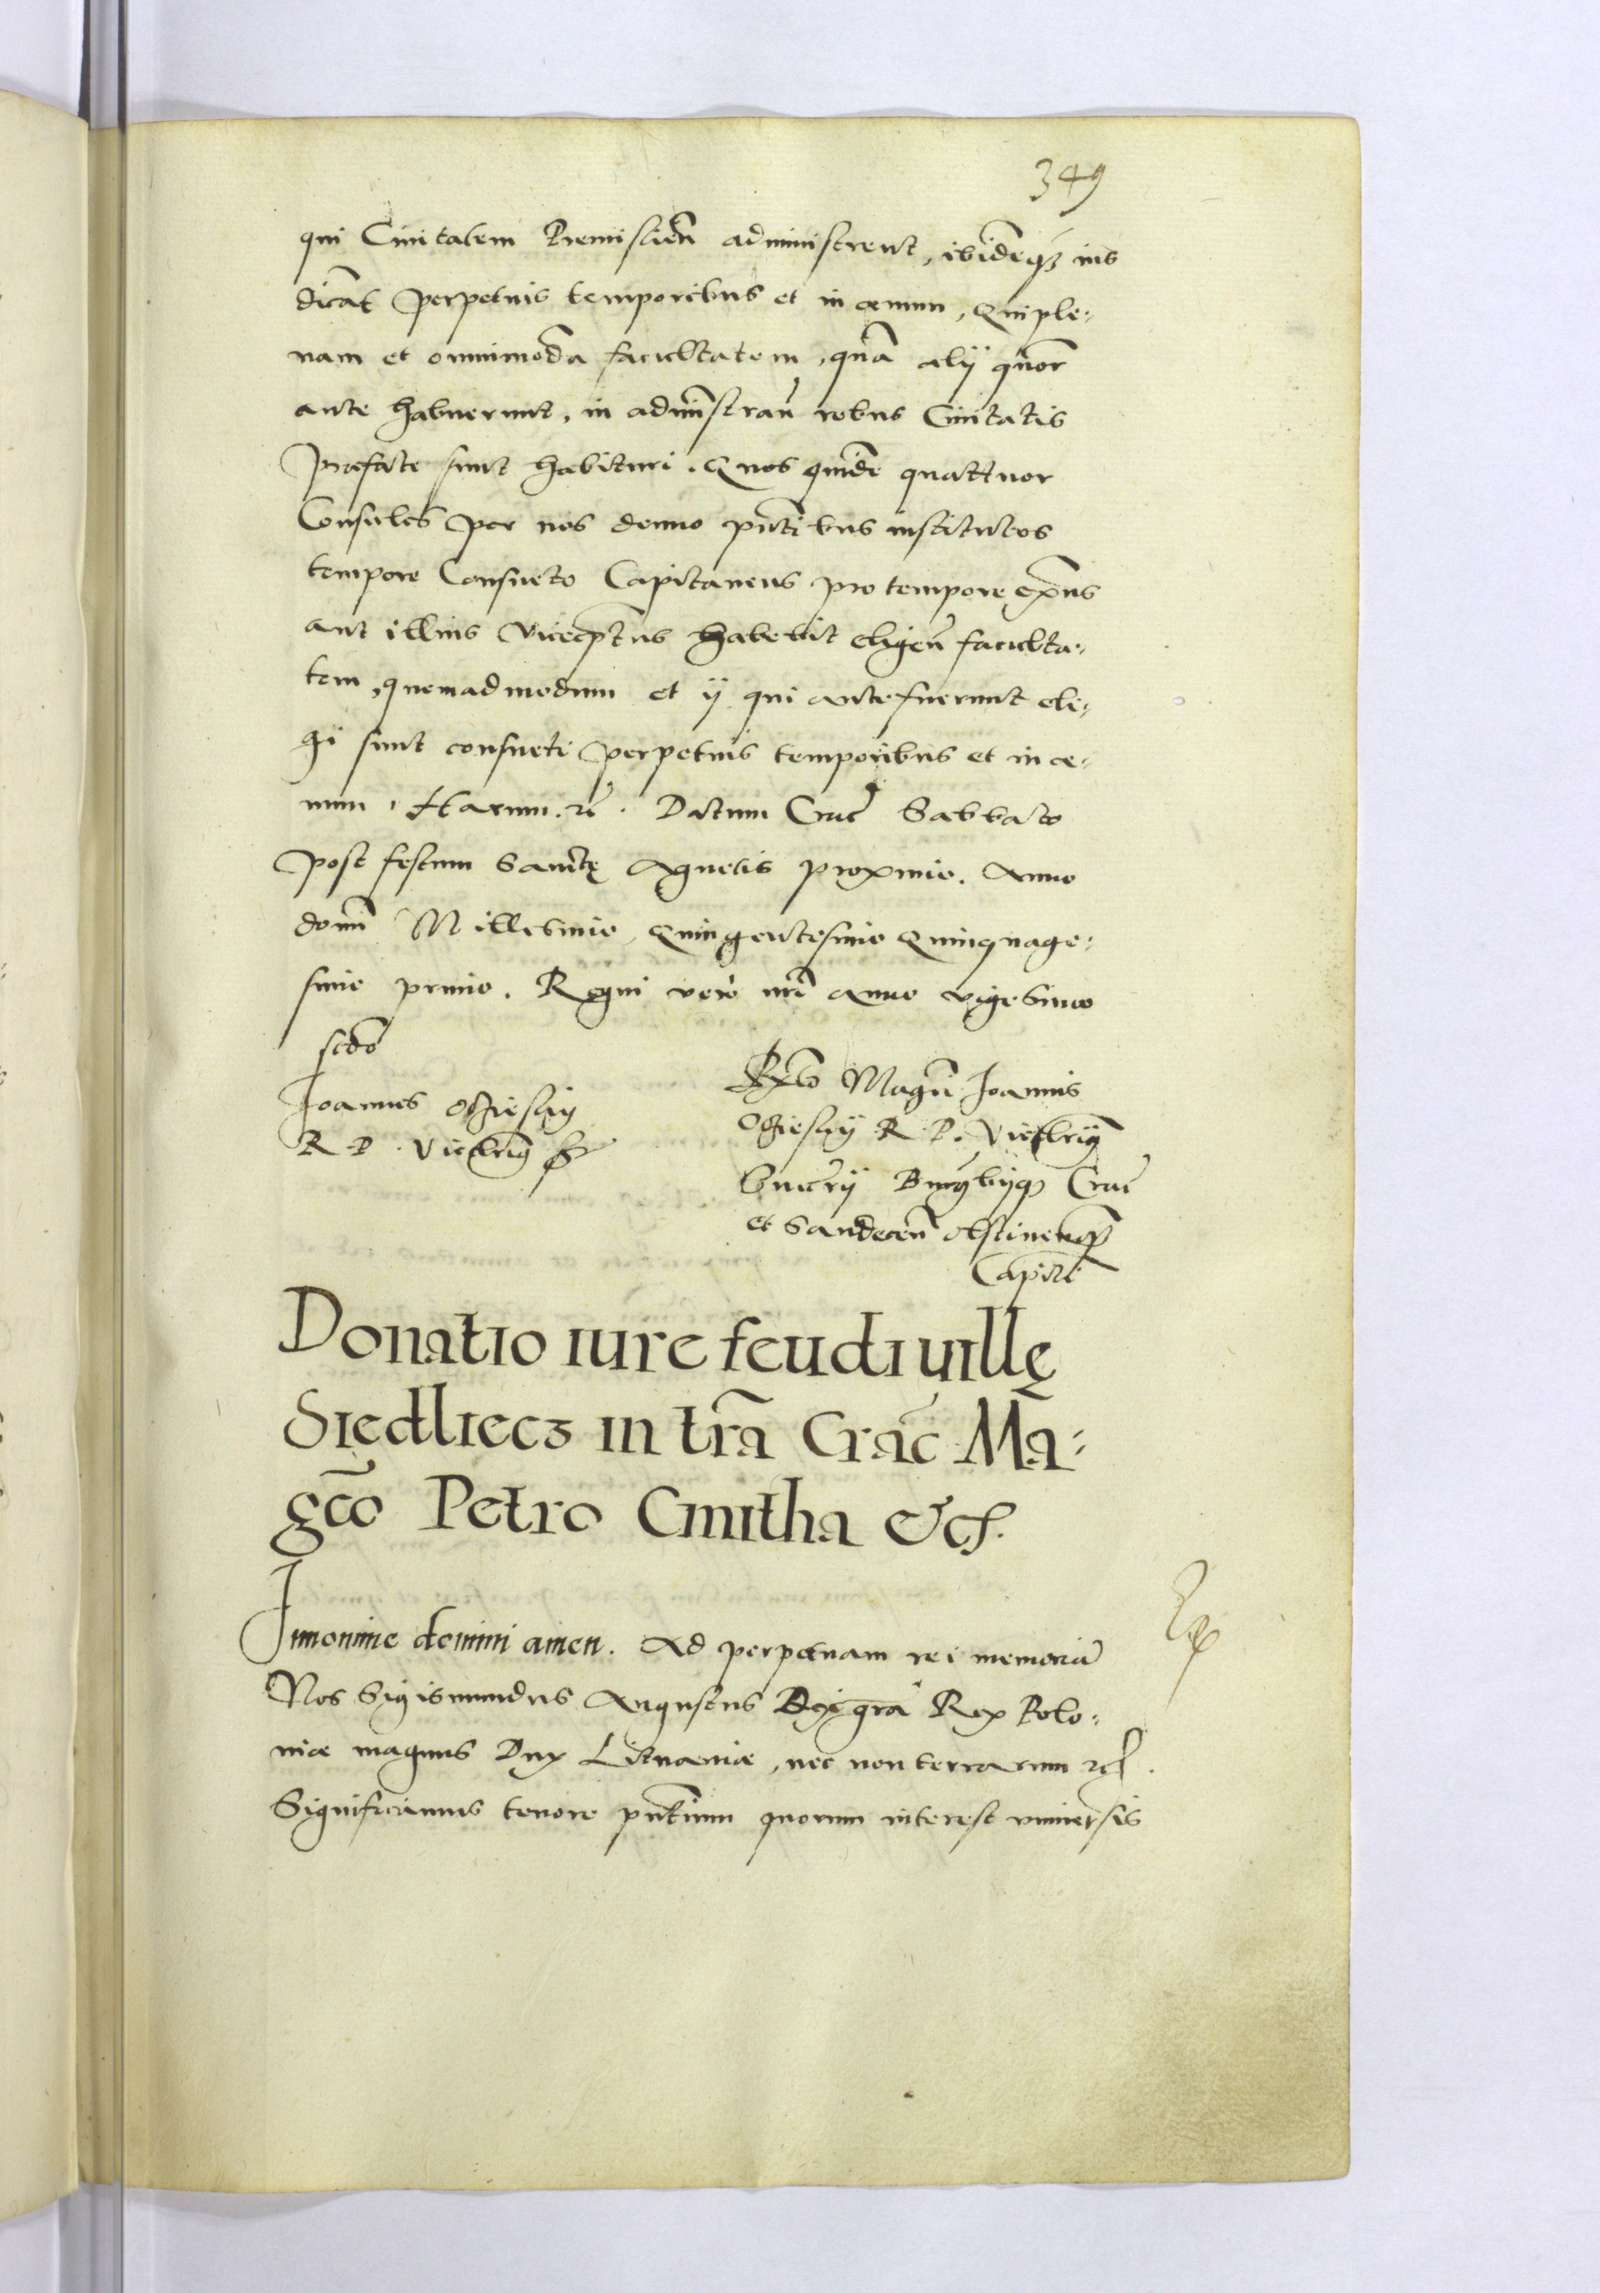 349
qui Ciuitatem Premislien̄ administrent, ibidēq̨ ius
dicāt perpetuis temporibus et in aeuum, Qui ple:
nam et omnimodā facultatem, quā alij quōr
ante habuerunt, in admīstran̄ rebus Ciuitatis
praefate sunt habituri. Quos quidē quattuor
Consules per nos denuo pn̄tibus institutos
tempore Consueto Capitaneus pro tempore exn̄s
aut illius Vicecaptn̄s habebit eligen̄ faculta:
tem, quemadmodum et ij qui ante fuerunt eli:
gi sunt consueti perpetuis temporibus et in ae:
uum. Harum. rē. Datum Crac̄ Sabbato
post festum Sanctę Agnetis proximo. Anno
domī Millesimo Quingentesimo Quinquage:
simo primo. Regni vero nrī anno vigesimo
scdō
Joannes Oczieski
R. P. Vicecancri̅ sst
Rel̄o Magci̅ Joannis
Oczieskij R. P. Vicecancrij
Crac̄
et Sandecen̄ Olstinensq̨
Capitī
Donatio iure feudi uillę
Siedliecz in trā Crac̄ Ma:
gc̄o Petro Cmitha &c.
In nomine domini amen. Ad perpetuam rei memoriā
Nos Sigismundus Augustus Dei grā Rex Polo:
niae magnus Dux Lituaniae, nec non terrarum rc̄.
Significamus tenore pn̄tium quorum interest vniuersis